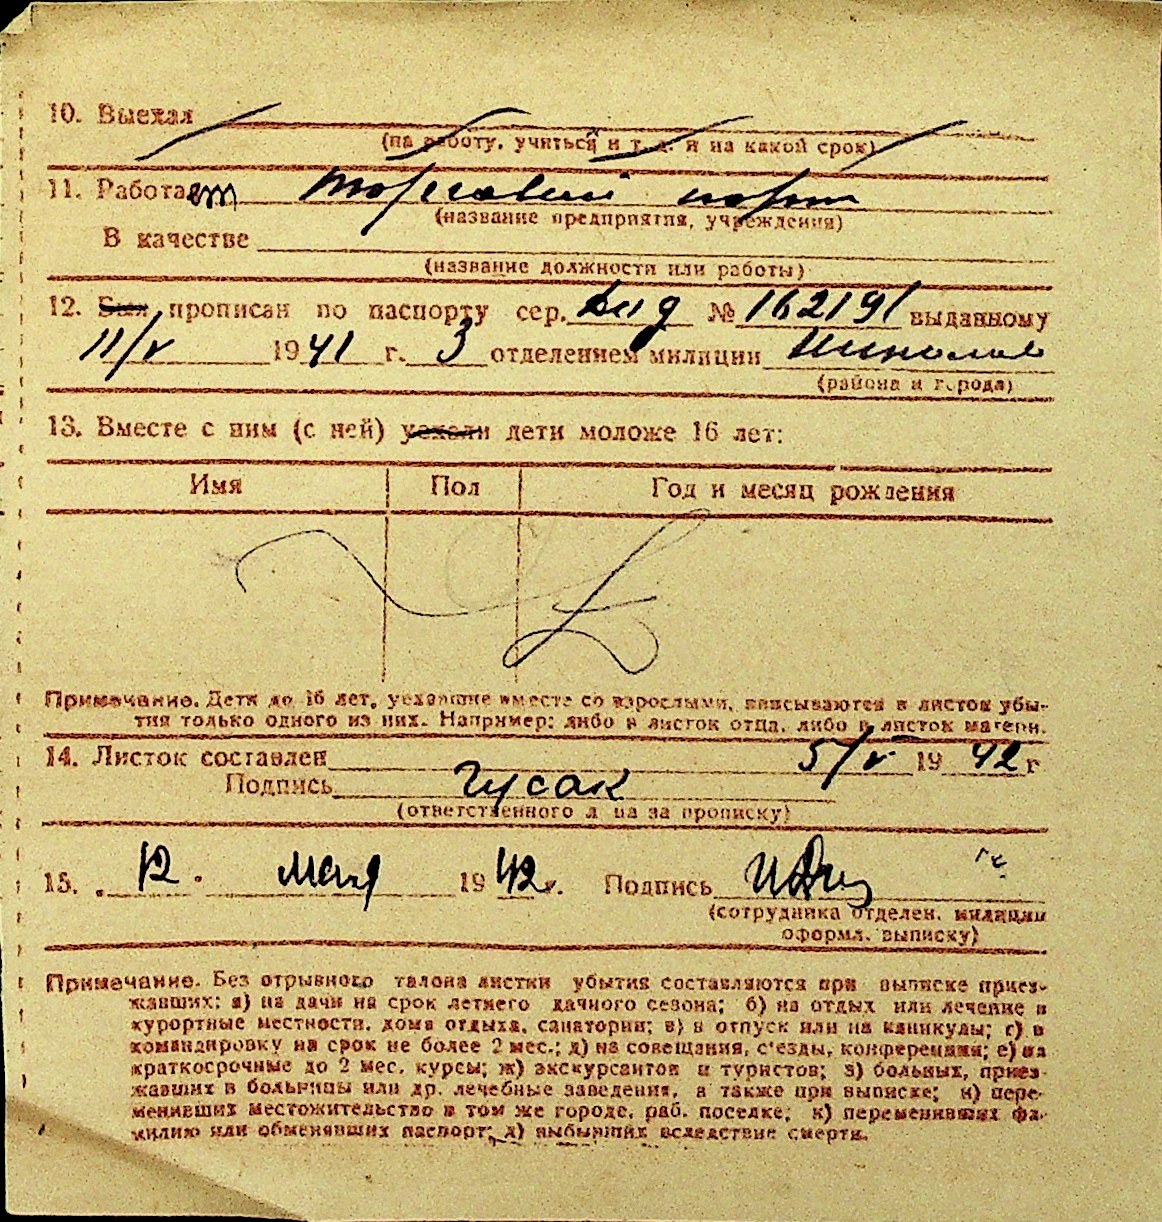 10. Выехал
(на работу, учиться и т. д. и на какой срок)
11. Работает Торговый порт
(название предприятия, учреждения)
В качестве
(название должности или работы)
12. Был прописан по паспорту сер. № 162191 выданному
11/V 1941 г. 3 отделением милиции
(района и города)
13. Вместе с ним (с ней) уехали дети моложе 16 лет:
Имя Пол Год и месяц рождения
Примечание. Дети до 16 лет, уехавшие вместе со взрослыми, вписываются в листок убы-
тия только одного из них. Например: либо в листок отца, либо в листок матери.
14. Листок составлен 5/V 1942 г
Подпись Гусак
(ответственного лица за прописку)
15. 12. мая 1942 г. Подпись
(сотрудника отделен. милиции
оформл. выписку)
Примечание. Без отрывного талона листки убытия составляются при выписке приез-
жавших: а) на дачи на срок летнего дачного сезона; б) на отдых или лечение в
курортные местности, дома отдыха, санатории; в) в отпуск или на каникулы; г) в
командировку на срок не более 2 мес.; д) на совещания, с'езды, конференции; е) на
краткосрочные до 2 мес. курсы; ж) экскурсантов и туристов; з) больных, приез-
жавших в больницы или др. лечебные заведения, а также при выписке; и) пере-
менивших местожительство в том же городе, раб. поселке; к) переменивших фа-
милию или обменявших паспорт; л) выбывших вследствие смерти.